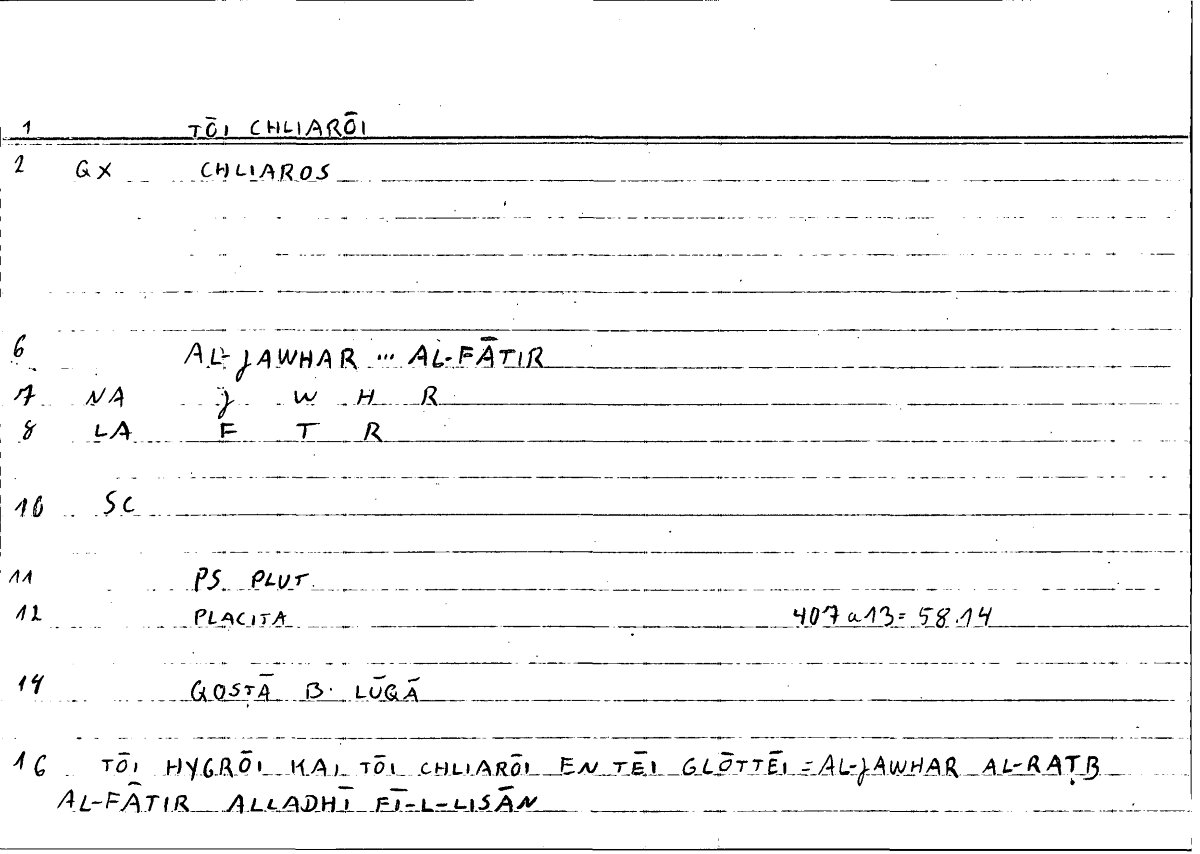 1 TŌI CHLIARŌI
2 GX CHLIAROS
6 AL-JAWHAR ... AL-FĀTIR
7 NA J W H R
8 LA F T R
10 SC
11 PS. PLUT.
12 PLACITA 407a13=58.14
14 QOSṬĀ B. LŪQĀ
16 TŌI HYGRŌI KAI TŌI CHLIARŌI EN TĒI GLŌTTĒI = AL-JAWHAR AL-RAṬB
AL-FĀTIR ALLADHĪ FĪ-L-LISĀN